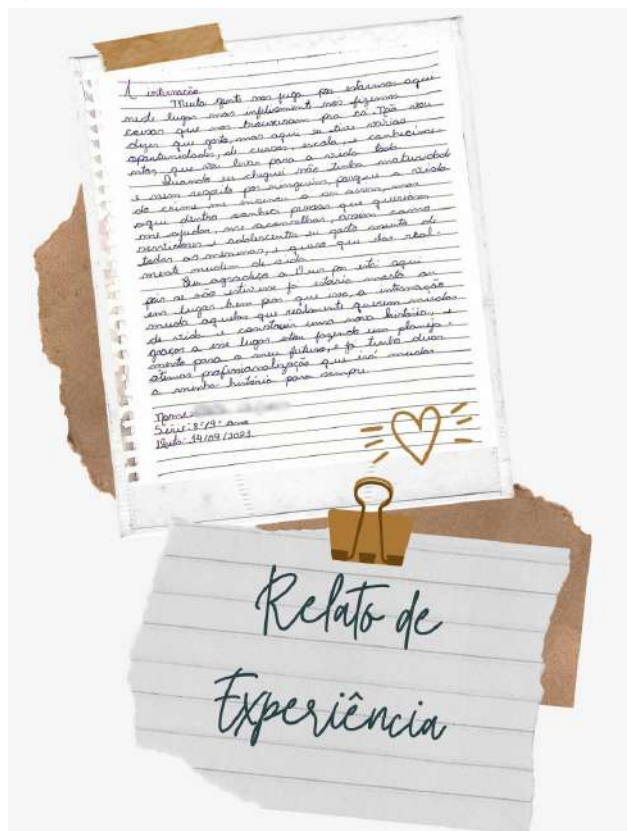 A internação
Muita gente nos julga por estarmos aqui
neste lugar mas infelizmente nos fizemos
coisas que nos trouxeram pra cá. Não vou
dizer que gosto, mas aqui eu tive várias
oportunidades, de cursos, escola, e conhecimen-
tos, que vou levar para a vida toda.
Quando eu cheguei não tinha maturidade
e nem respeito por ninguém, porque a vida
do crime me ensinou a ser assim, mas
aqui dentro conheci pessoas que queriam
me ajudar, me aconselhar, assim como
servidores e adolescentes eu gosto muito de
todas as meninas, e quero que elas real-
mente mudem de vida.
Eu agradeço a Deus por está aqui
pois se não estivesse já estaria morta ou
em lugar bem pior que isso, a internação
muda aqueles que realmente querem mudar
de vida e construir uma nova história, e
graças a esse lugar estou fazendo um planeja-
mento para o meu futuro, e já tenho duas
ótimas profissionalização que irá mudar
a minha história para sempre.
Nome:
Série: 8º/9º ano
Data: 14/09/2021
Relato de
Experiência